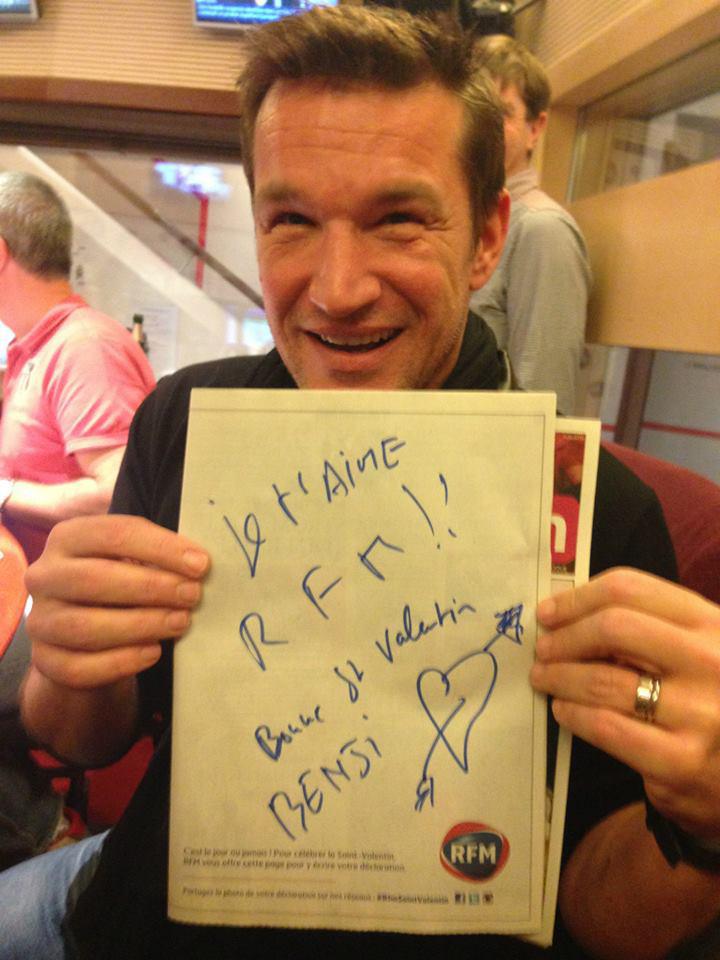 je t'Aime
RFM !!
Bonne St Valentin
BENJi
RFM
C'est le jour ou jamais ! Pour célébrer la Saint-Valentin,
RFM vous offre cette page pour y écrire votre déclaration.
Partagez la photo de votre déclaration sur nos réseaux : #RfmSaintValentin